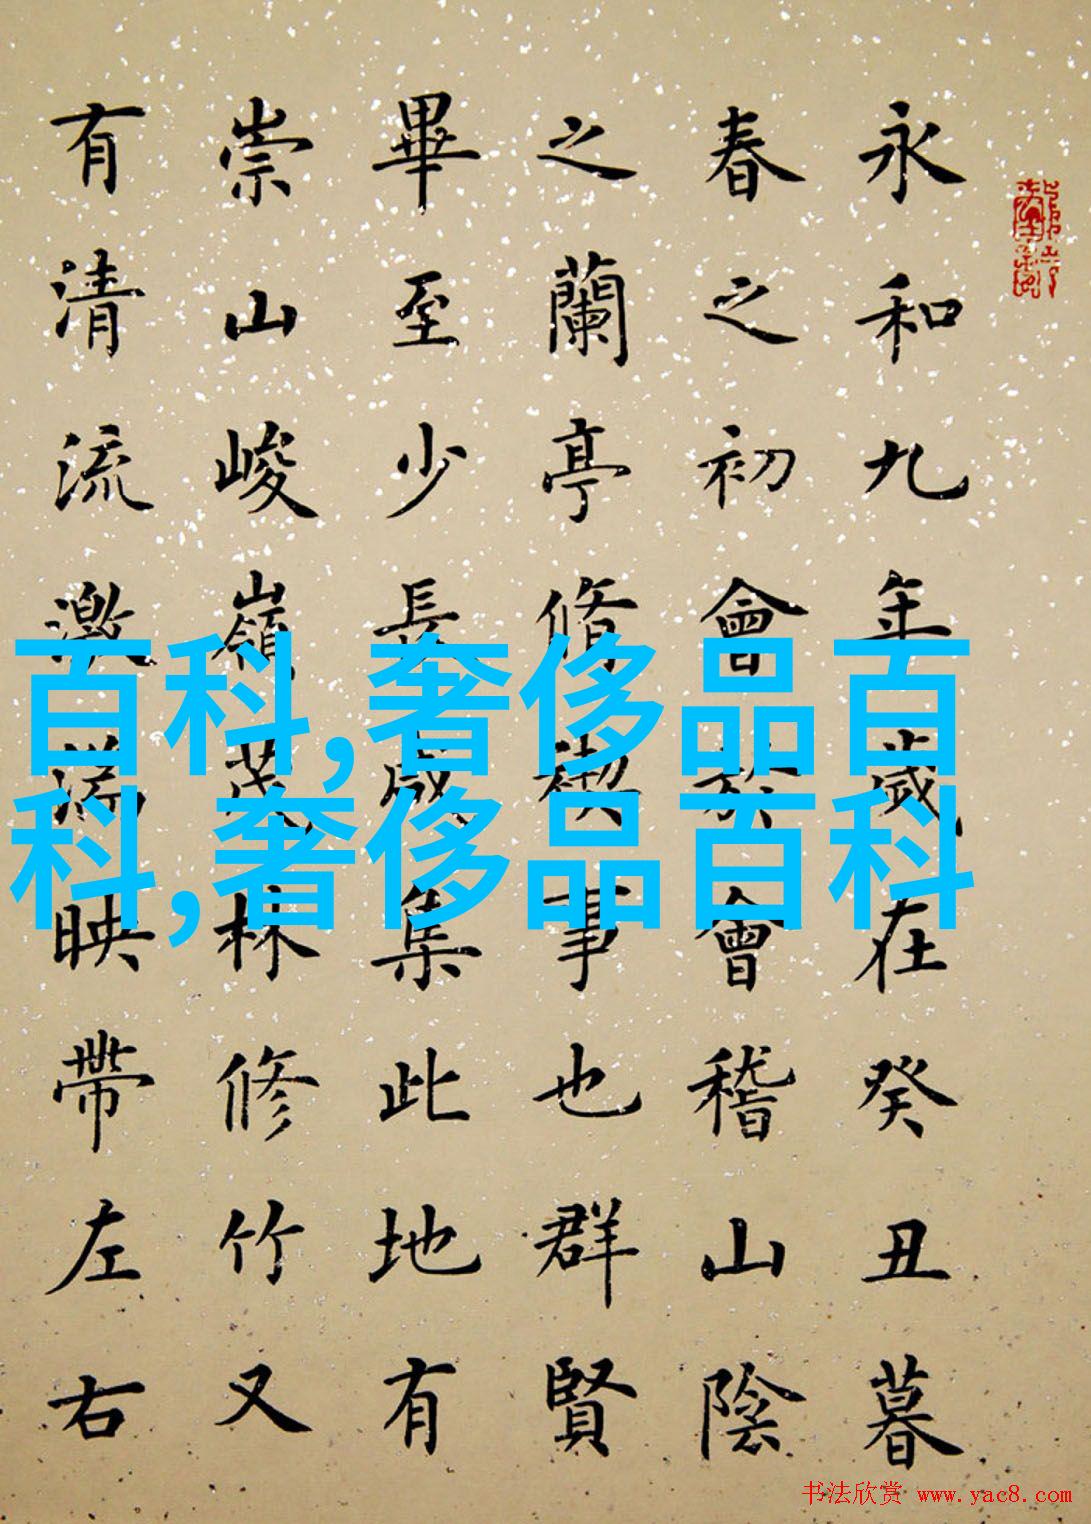 永和九年歲在癸丑暮
春之初會於會稽山陰
之蘭亭脩禊事也群賢
畢至少長咸集此地有
崇山峻嶺茂林修竹又
有清流激湍映帶左右
百科,奢侈品百
科,奢侈品百科
书法欣赏 www.yac8.com